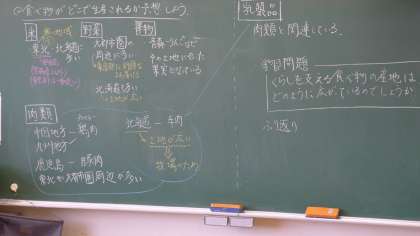 ◎食べ物がどこで生産されるか予想しよう。
米
東北 北海道に
多い
野菜
大都市圏の
周辺に多い
北海道も多い
果物
青森 りんごなど
その土地に合った
果実となっている
乳製品
肉類と関連している。
学習問題
くらしを支える食べ物の産地は
どのように広がっているのでしょうか
ふり返り
肉類
中国地方 鶏肉
九州地方
鹿児島 豚肉
東北や大都市圏周辺が多い
北海道 牛肉
土地が広い
牧場のため